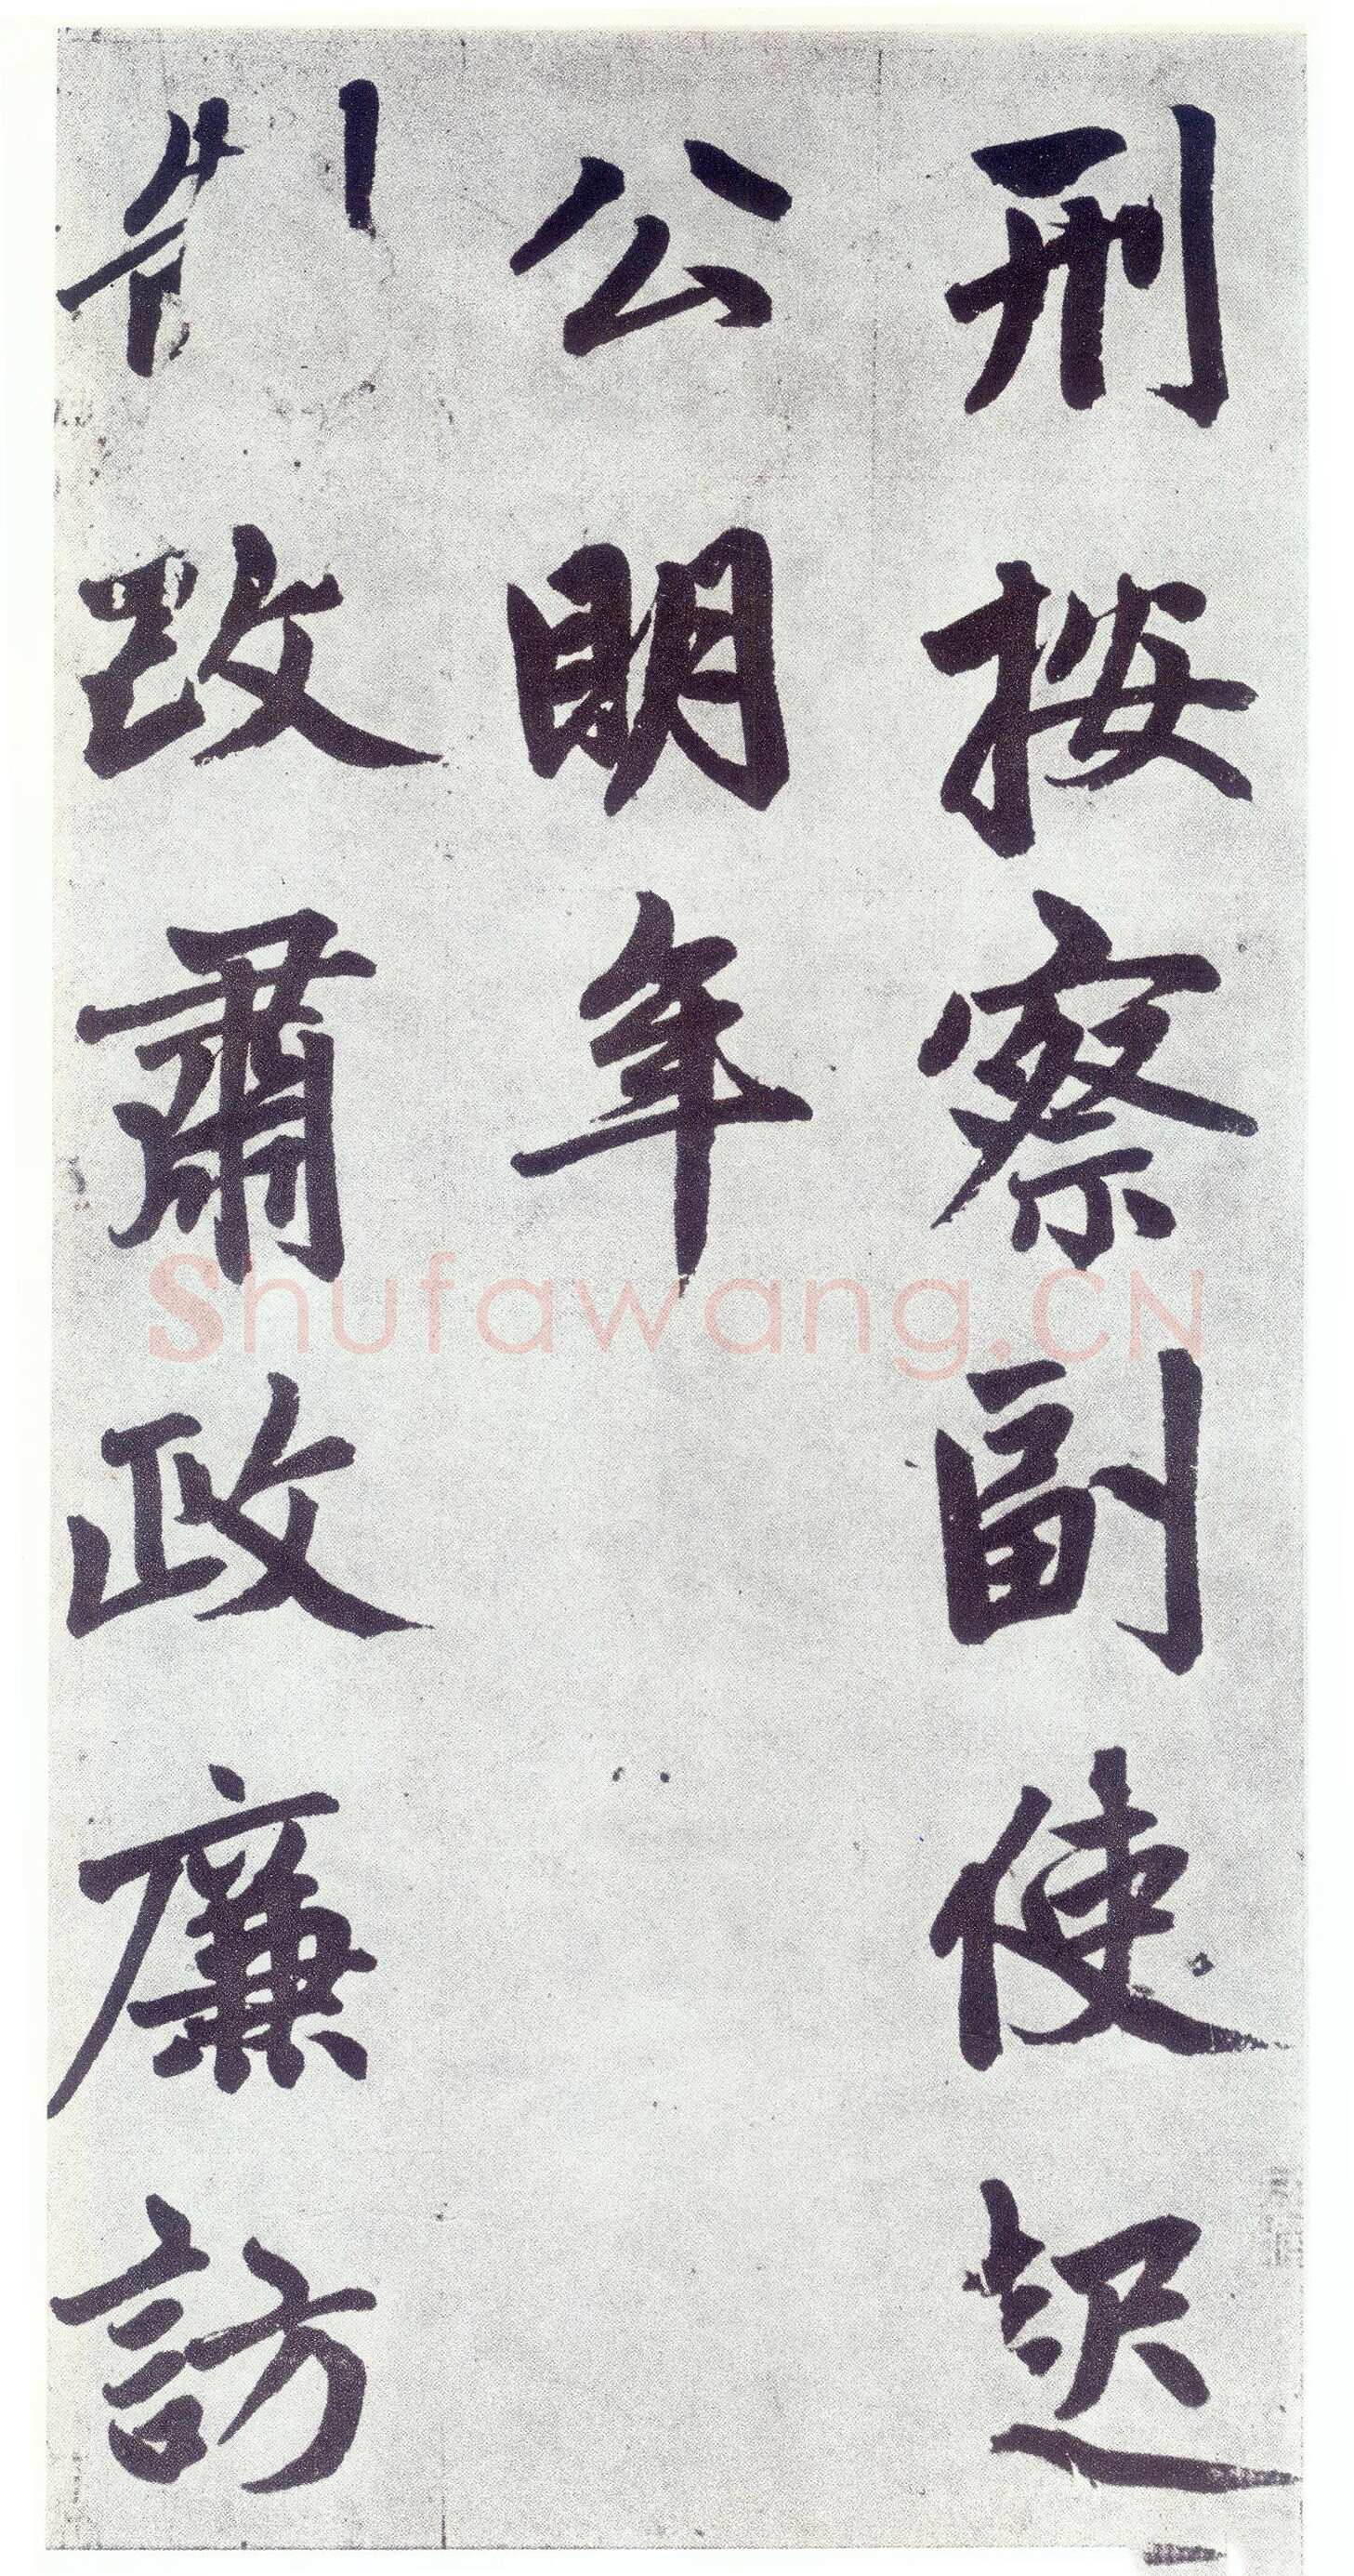 刑按察副使起
公明年
制改肅政廉訪
Shufawang.CN